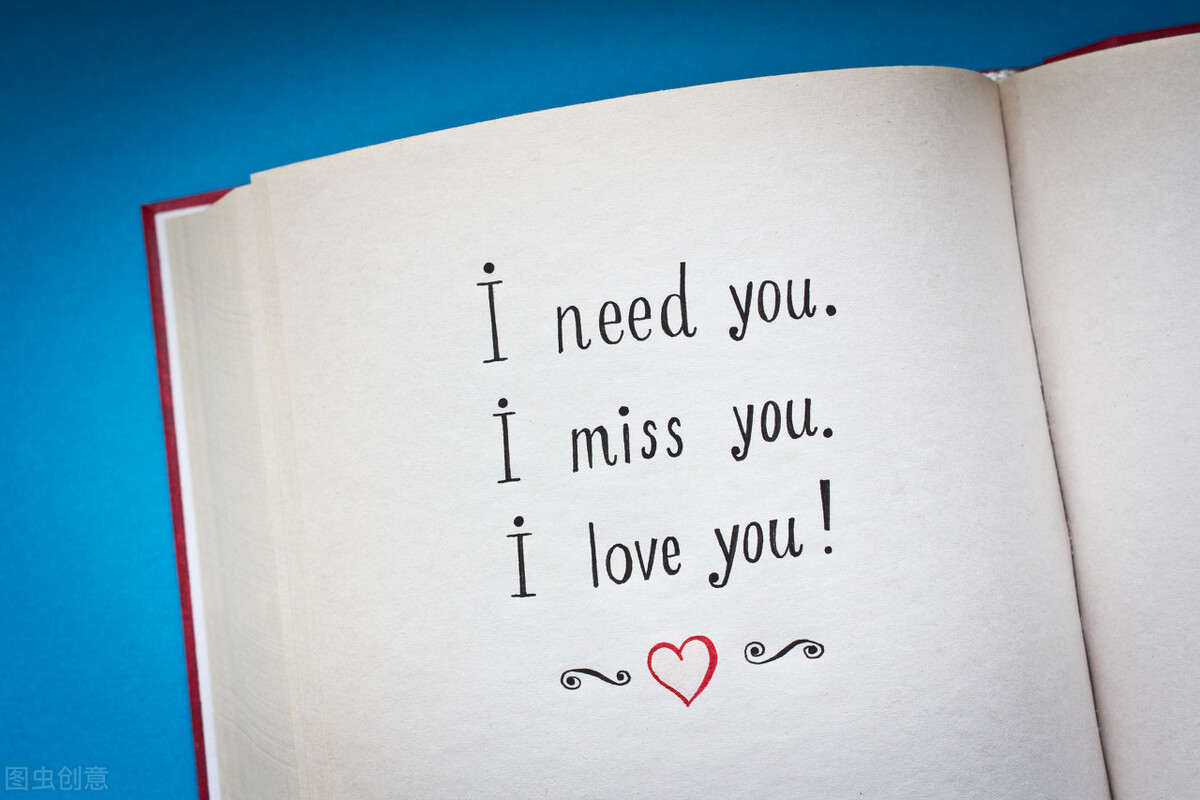 I need you.
I miss you.
I love you!
图虫创意